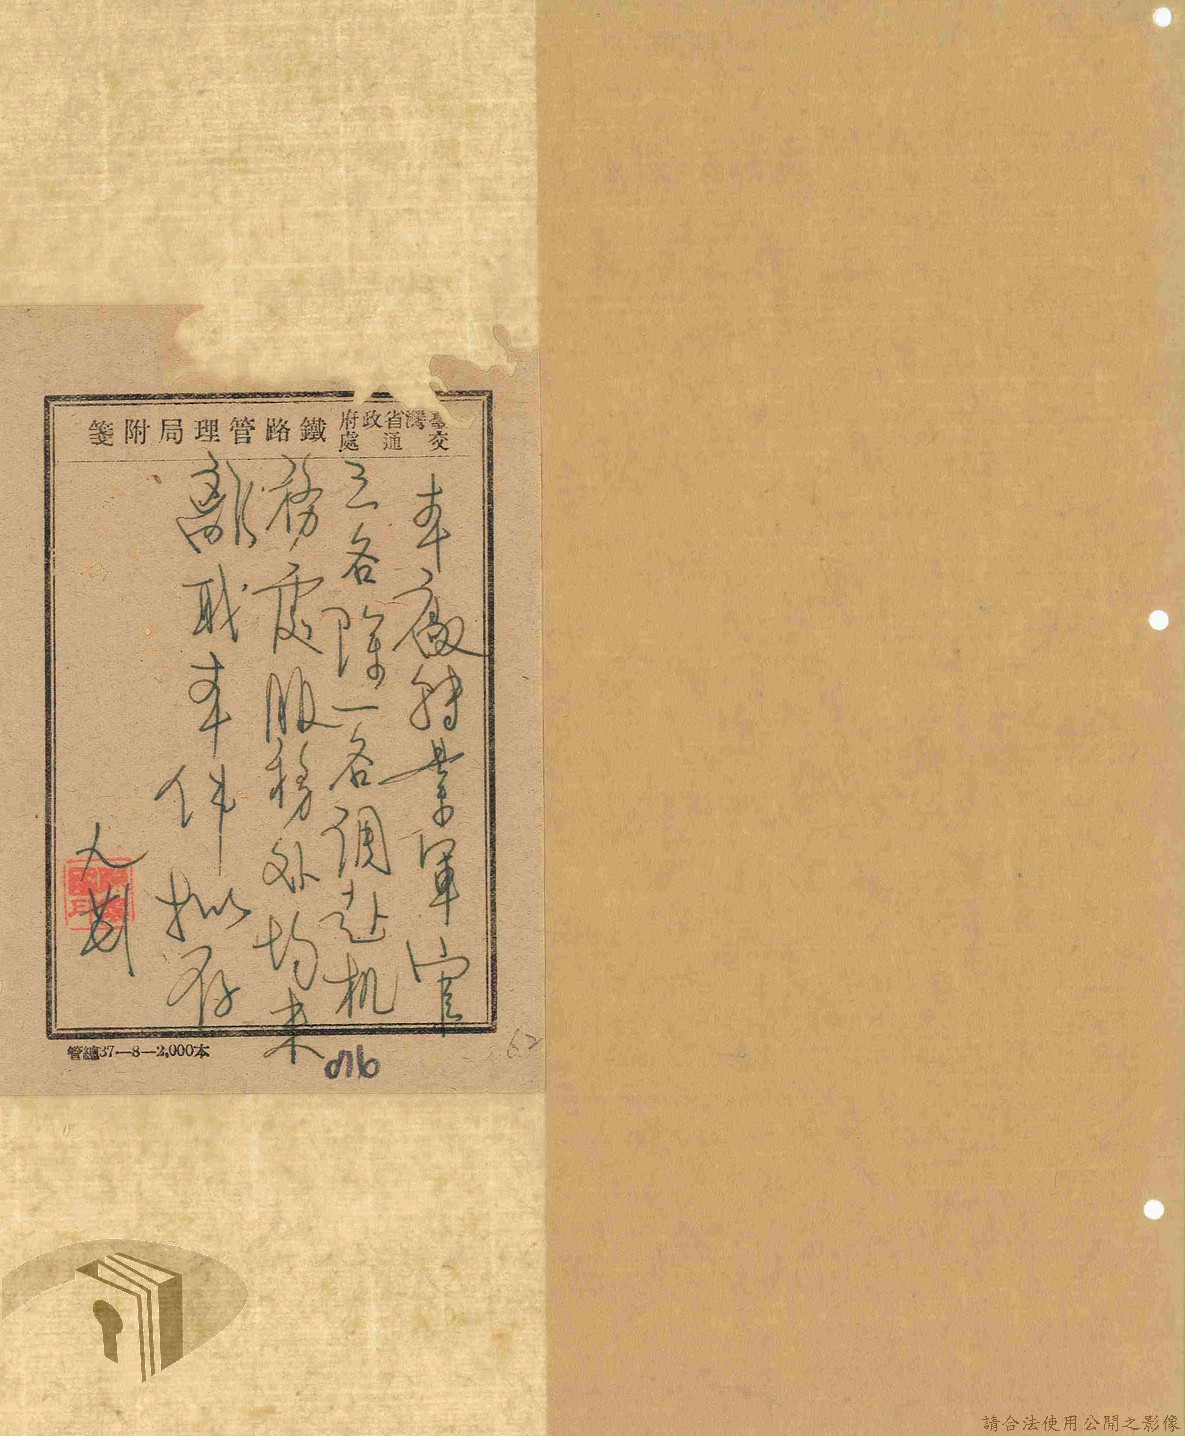 臺灣省政府
交通處
鐵路管理局附箋
本廠轉業軍官
三名除一名調赴机
務處服務外均未
離職本件擬存
管總37—8—2,000本
62
請合法使用公開之影像